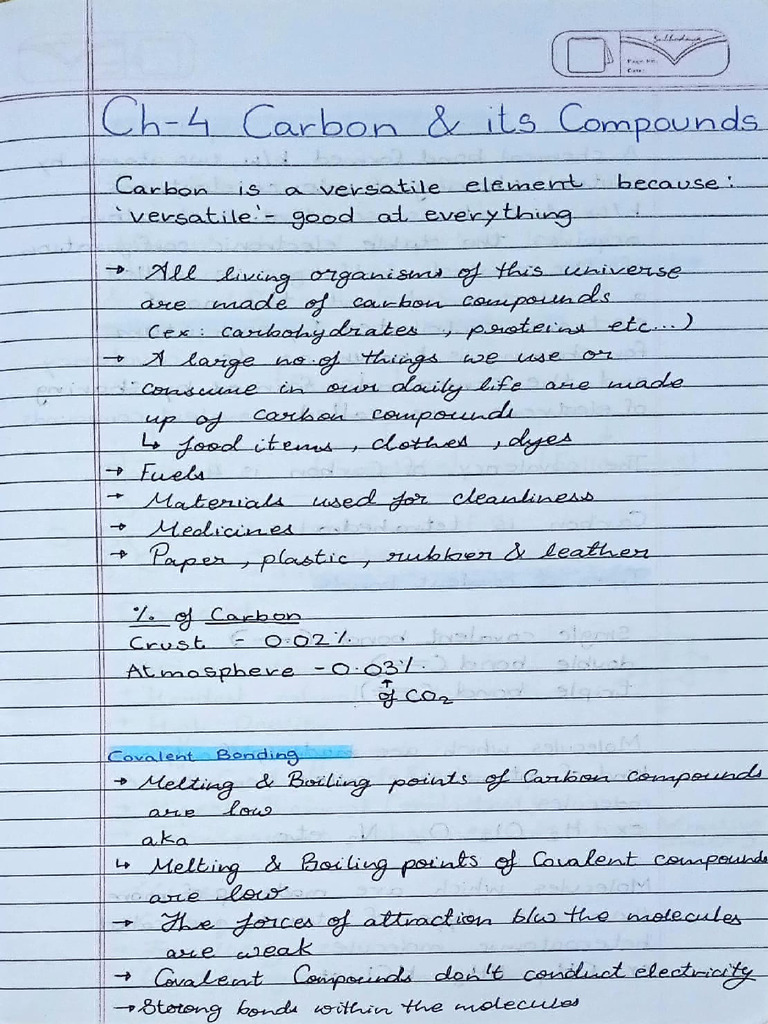 Ch-4 Carbon & its Compounds
Carbon is a versatile element because:
'versatile'- good at everything
→ All living organisms of this universe
are made of carbon compounds
(ex: carbohydrates, proteins etc...)
→ A large no. of things we use or
consume in our daily life are made
up of carbon compounds
↳ food items, clothes, dyes
→ Fuels
→ Materials used for cleanliness
→ Medicines
→ Paper, plastic, rubber & leather
% of Carbon
Crust - 0.02%
Atmosphere - 0.03%
↑
of CO₂
Covalent Bonding
→ Melting & Boiling points of Carbon compounds
are low
aka
↳ Melting & Boiling points of Covalent compounds
are low
→ The forces of attraction b/w the molecules
are weak
→ Covalent Compounds don't conduct electricity
→ Strong bonds within the molecules